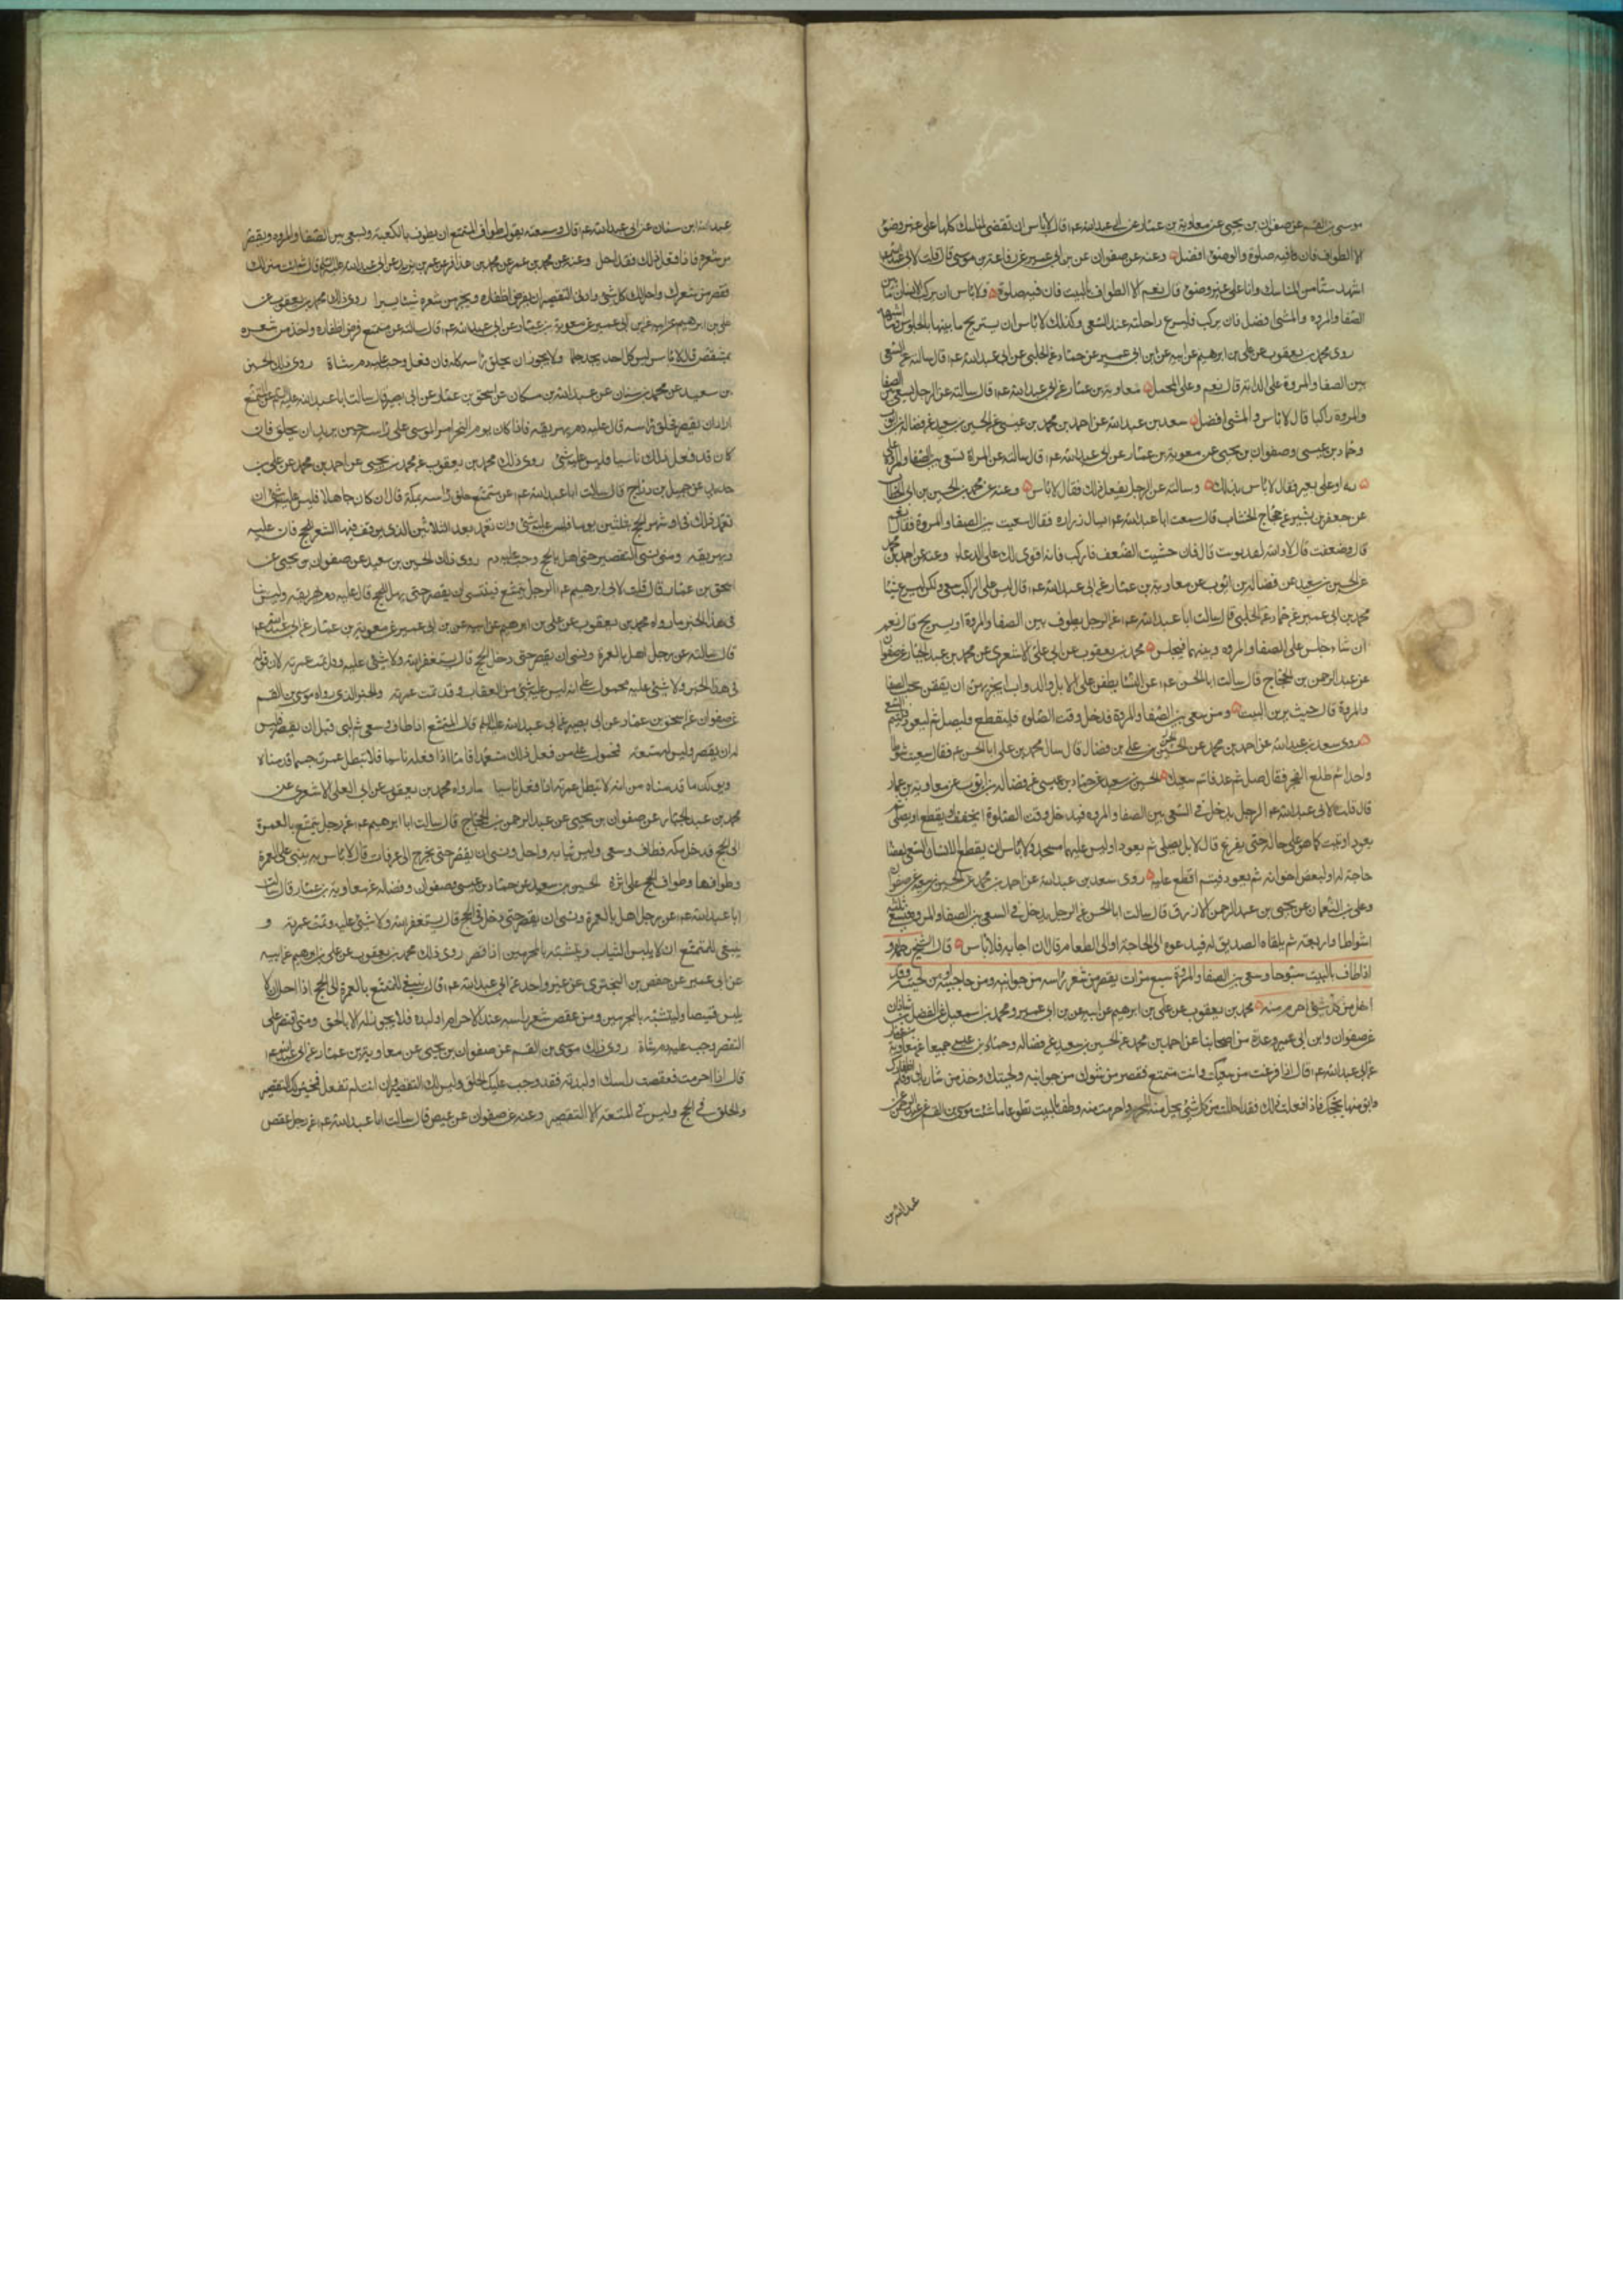 موسى بن القسم عن صفوان بن يحيى عن معاوية بن عمار عن ابي عبد الله عم قال لا باس ان تقضي المناسك كلها على غير وضوء
الا الطواف فان فيه صلوة والوضوء افضل وعنه عن صفوان عن بن ابي عمير عن رفاعة بن موسى قال قلت لابي عبد الله عم
اشهد شيئا من المناسك وانا على غير وضوء قال نعم الا الطواف بالبيت فان فيه صلوة ولا باس ان يركب الانسان ما بين
الصفا والمروة والمشي افضل فان يركب فليسرع راحلته عند السعي وكذلك لا باس ان يستريح ما بينهما بالجلوس
روى محمد بن يعقوب عن علي بن ابرهيم عن ابيه عن ابن ابي عمير عن حماد عن الحلبي عن ابي عبد الله عم قال سالته عن السعي
بين الصفا والمروة على الدابة قال نعم وعلى المحمل معاوية بن عمار عن ابي عبد الله عم قال سالته عن الرجل يسعى بين الصفا
والمروة راكبا قال لا باس والمشي افضل سعد بن عبد الله عن احمد بن محمد بن عيسى عن الحسين بن سعيد عن فضالة بن ايوب
وحماد بن عيسى وصفوان بن يحيى عن معوية بن عمار عن ابي عبد الله عم قال سالته عن المراة تسعى بين الصفا والمروة على
دابة او على بعير فقال لا باس بذلك وسالته عن الرجل يفعل ذلك فقال لا باس وعنه عن محمد بن الحسين بن ابي الخطاب
عن جعفر بن بشير عن حجاج الخشاب قال سمعت ابا عبد الله عم يسال زرارة فقال اسعيت بين الصفا والمروة فقال نعم
قال وضعفت قال لا والله لقد قويت قال فان خشيت الضعف فاركب فانه اقوى لك على الدعاء وعنه عن احمد بن محمد
عن الحسين بن سعيد عن فضالة بن ايوب عن معاوية بن عمار عن ابي عبد الله عم قال ليس على الراكب سعي ولكن ليسرع شيئا
محمد بن ابي عمير عن حماد عن الحلبي قال سالت ابا عبد الله عم عن الرجل يطوف بين الصفا والمروة او يستريح قال نعم
ان شاء جلس على الصفا والمروة وبينهما فيجلس محمد بن يعقوب عن ابي علي الاشعري عن محمد بن عبد الجبار عن صفوان
عن عبد الرحمن بن الحجاج قال سالت ابا الحسن عم عن النسا يطفن على الابل والدواب ايجزيهن ان يقفن تحت الصفا
والمروة قال حيث يرين البيت ومن سعى بين الصفا والمروة فدخل وقت الصلوة فليقطع وليصل ثم ليعود فليتم السعي
روى سعد بن عبد الله عن احمد بن محمد عن الحسن بن علي بن فضال قال سال محمد بن علي ابا الحسن عم فقال سعيت شوطا
واحدا ثم طلع الفجر فقال صل ثم عد فاتم سعيك الحسين بن سعيد عن حماد بن عيسى عن فضالة بن ايوب عن معاوية بن عمار
قال قلت لابي عبد الله عم الرجل يدخل في السعي بين الصفا والمروة فيدخل وقت الصلوة ايخفف او يقطع او يصلي ثم
يعود او يثبت كما هو على حاله حتى يفرغ قال لا بل يصلي ثم يعود او ليس عليهما مسجد ولا باس ان يقطع الانسان السعي لقضا
حاجة له او لبعض اخوانه ثم يعود فيتم ما قطع عليه روى سعد بن عبد الله عن احمد بن محمد عن الحسين بن سعيد عن صفوان
وعلي بن النعمان عن يحيى بن عبد الرحمن الازرق قال سالت ابا الحسن عم عن الرجل يدخل في السعي بين الصفا والمروة فيسعى ثلثة
اشواط او اربعة ثم يلقاه الصديق له فيدعوه الى الحاجة او الى الطعام قال ان اجابه فلا باس قال الشيخ رحمه
اذا طاف بالبيت سبوعا وسعى بين الصفا والمروة سبع مرات يقصر من شعر راسه من جوانبه ومن حاجبيه ومن لحيته وقد
احل من كل شئ احرم منه محمد بن يعقوب عن علي بن ابرهيم عن ابيه عن بن ابي عمير ومحمد بن اسمعيل عن الفضل بن شاذان
عن صفوان وابن ابي عمير وعدة من اصحابنا عن احمد بن محمد عن الحسين بن سعيد عن فضالة وحماد بن عيسى جميعا عن معاوية
عن ابي عبد الله عم قال اذا فرغت من سعيك وانت متمتع فقصر من شعرك من جوانبه ولحيتك وخذ من شاربك وقلم اظفارك
وابق منها لحجك فاذا فعلت ذلك فقد احللت من كل شئ يحل منه المحرم واحرمت منه وطف بالبيت تطوعا ما شئت موسى بن القسم عن عبد الرحمن عن
عبد الله بن
عبد الله ابن سنان عن ابي عبد الله عم قال وسمعته يقول طواف المتمتع ان يطوف بالكعبة ويسعى بين الصفا والمروة ويقصر
من شعره فاذا فعل ذلك فقد احل وعنه عن محمد بن عمر عن محمد بن عذافر عن عمر بن يزيد عن ابي عبد الله عليه السلم قال ثم ائت منزلك
فقصر من شعرك واحل لك كل شئ وادنى التقصير ان يقرض اظفاره ويجز من شعره شيئا يسيرا روى ذلك محمد بن يعقوب عن
علي بن ابرهيم عن ابيه عن بن ابي عمير عن معوية بن عمار عن ابي عبد الله عم قال سالته عن متمتع قرض اظفاره واخذ من شعره
بمشقص قال لا باس ليس كل احد يجد جلما ولا يجوز ان يحلق راسه كله فان فعل وجب عليه دم شاة روى ذلك الحسين
بن سعيد عن محمد بن سنان عن عبد الله بن مسكان عن اسحق بن عمار عن ابي بصير قال سالت ابا عبد الله عليه السلم عن المتمتع
اراد ان يقصر فحلق راسه قال عليه دم يهريقه فاذا كان يوم النحر امر الموسى على راسه حين يريد ان يحلق فان
كان قد فعل ذلك ناسيا فليس عليه شئ روى ذلك محمد بن يعقوب عن محمد بن يحيى عن احمد بن محمد عن علي بن
حديد عن جميل بن دراج قال سالت ابا عبد الله عم عن متمتع حلق راسه بمكة قال ان كان جاهلا فليس عليه شئ وان
تعمد ذلك في اول شهور الحج بثلثين يوما فليس عليه شئ وان تعمد بعد الثلاثين الذي يوفر فيها الشعر للحج فان عليه
دم يهريقه ومتى نسي التقصير حتى اهل بالحج وجب عليه دم روى ذلك الحسين بن سعيد عن صفوان بن يحيى عن
اسحق بن عمار قال قلت لابي ابرهيم عم الرجل يتمتع فينسى ان يقصر حتى يهل بالحج قال عليه دم يهريقه وليس ينافي
في هذا الخبر ما رواه محمد بن يعقوب عن علي بن ابرهيم عن ابيه عن بن ابي عمير عن معوية بن عمار عن ابي عبد الله عم
قال سالته عن رجل اهل بالعمرة ونسي ان يقصر حتى دخل الحج قال يستغفر الله ولا شئ عليه وقد تمت عمرته لان قوله
في هذا الخبر ولا شئ عليه محمول على انه ليس عليه شئ من العقاب وقد تمت عمرته والخبر الذي رواه موسى بن القسم
عن صفوان عن اسحق بن عمار عن ابي بصير عن ابي عبد الله عليه السلم قال المتمتع اذا طاف وسعى ثم لبى قبل ان يقصر فليس
له ان يقصر وليس له متعة فمحمول على من فعل ذلك متعمدا فاما اذا فعله ناسيا فلا تبطل عمرته حسبما قدمناه
ويوكد ما قدمناه من انه لا تبطل عمرته اذا فعل ناسيا ما رواه محمد بن يعقوب عن ابي العلي الاشعري عن
محمد بن عبد الجبار عن صفوان بن يحيى عن عبد الرحمن بن الحجاج قال سالت ابا ابرهيم عم عن رجل يتمتع بالعمرة
الى الحج فدخل مكة فطاف وسعى ولبس ثيابه واحل ونسي ان يقصر حتى يخرج الى عرفات قال لا باس به يبني على العمرة
وطوافها وطواف الحج على اثره الحسين بن سعيد عن حماد بن عيسى وصفوان وفضالة عن معاوية بن عمار قال سالت
ابا عبد الله عم عن رجل اهل بالعمرة ونسي ان يقصر حتى يدخل في الحج قال يستغفر الله ولا شئ عليه وتمت عمرته و
ينبغي للمتمتع ان لا يلبس الثياب ويتشبه بالمحرمين اذا قصر روى ذلك محمد بن يعقوب عن علي بن ابرهيم عن ابيه
عن ابن ابي عمير عن حفص بن البختري عن غير واحد عن ابي عبد الله عم قال ينبغي للمتمتع بالعمرة الى الحج اذا احل ان لا
يلبس قميصا وليتشبه بالمحرمين ومن عقص شعر راسه عند الاحرام او لبده فلا يجوز له الا بالحلق ومتى اقتصر على
التقصير وجب عليه دم شاة روى ذلك موسى بن القسم عن صفوان بن يحيى عن معاوية بن عمار عن ابي عبد الله عم
قال اذا احرمت فعقصت راسك او لبدته فقد وجب عليك الحلق وليس لك التقصير وان انت لم تفعل فمخير لك التقصير
والحلق في الحج وليس في المتعة الا التقصير وعنه عن صفوان عن عيص قال سالت ابا عبد الله عم عن رجل عقص